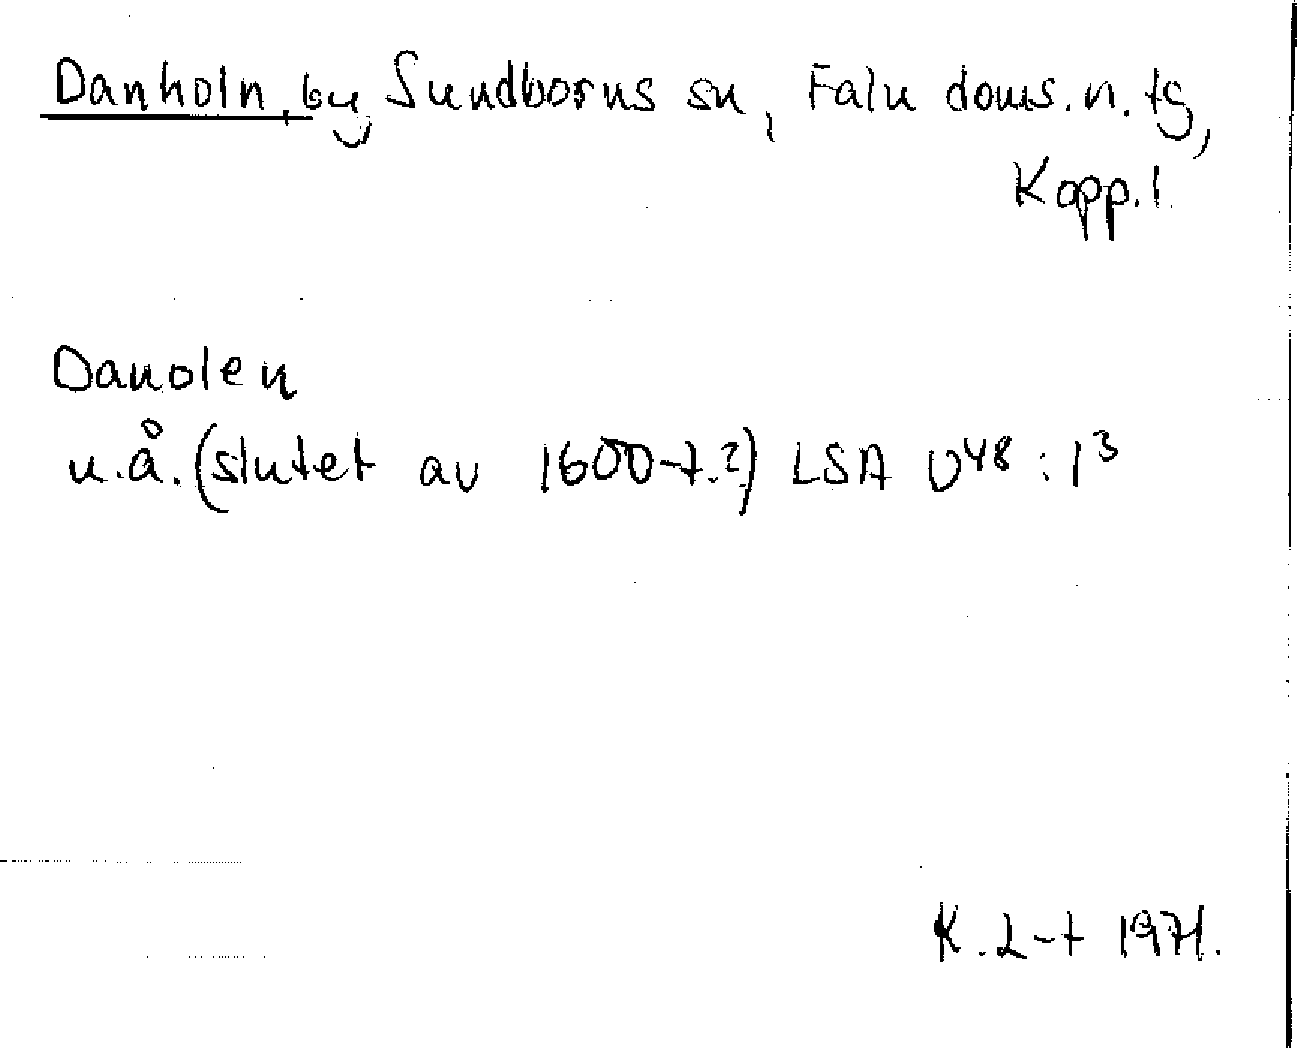 Danholn, by Sundborns sn, Falu doms.n. tg,
Kopp. l.
Danolen
u.å. (slutet av 1600-t.?) LSA U48:1³
K. L-t 1971.